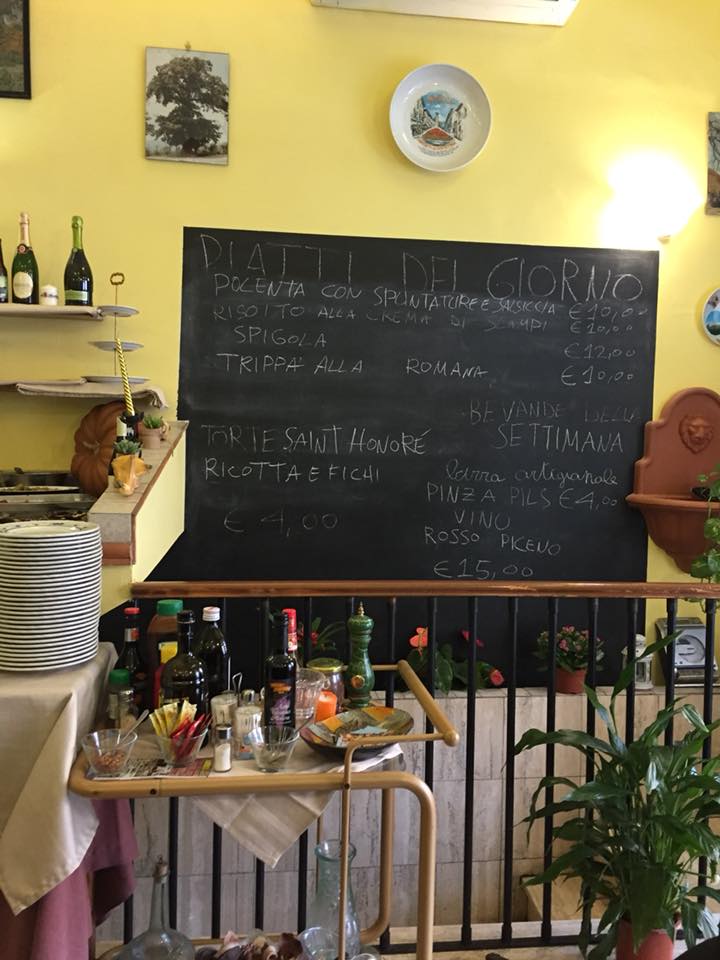 PIATTI DEL GIORNO
POLENTA CON SPUNTATURE E SALSICCIA €10,00
RISOTTO ALLA CREMA DI SCAMPI €10,00
SPIGOLA €12,00
TRIPPA ALLA ROMANA €10,00
BEVANDE DELLA
SETTIMANA
TORTE SAINT HONORÉ
RICOTTA E FICHI
€ 4,00
birra artigianale
PINZA PILS €4,00
VINO
ROSSO PICENO
€15,00